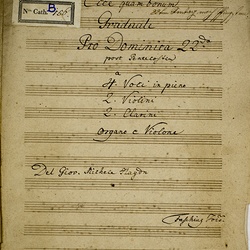 No Cath. B. 186.
Ecce quam bonum
Graduale
Pro Dominica 22da
post Pentecosten
a
4. Voci in pieno
2. Violini
2. Clarini
Organo e Violone
Del Giov. Michele Haydn